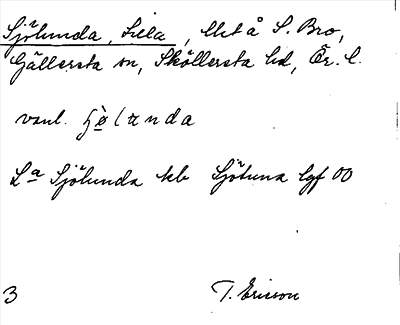 Sjölunda, Lilla, lht å S. Bro,
Gällersta sn, Sköllersta hd, Ör. l.
vanl.
La Sjölunda kb Sjötuna lgf 00
3 T. Ericson